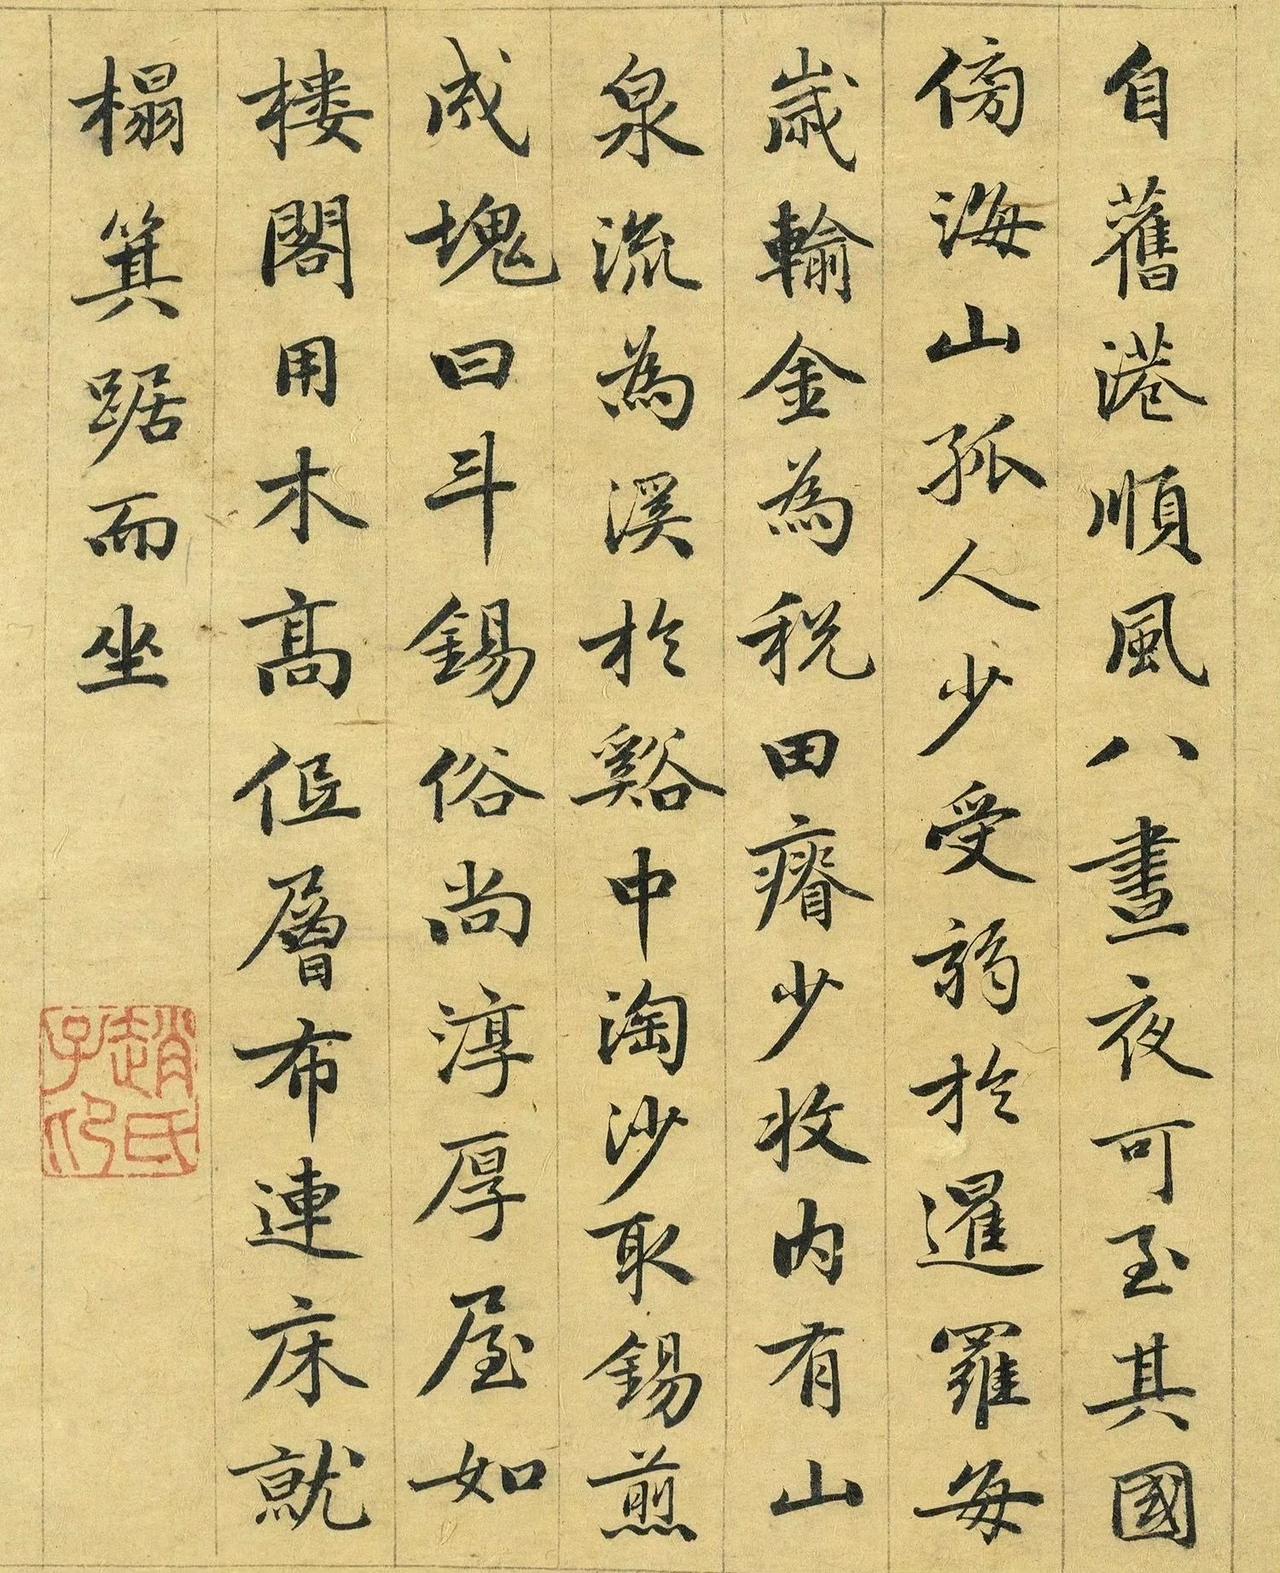 自舊港順風八晝夜可至其國
傍海山孤人少受弱於暹羅每
歲輸金為稅田瘠少收内有山
泉流為溪於谿中淘沙取錫煎
成塊曰斗錫俗尚淳厚屋如
樓閣用木高低層布連床就
榻箕踞而坐
趙氏子印